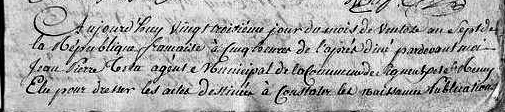 Aujourd'huy vingt troisième jour du mois de Ventose an Sept de
la République française à cinq heures de l'après diné pardevant moi
Jean Pierre agent Municipal de la Commune de
Elu pour dresser les actes destinés à Constater les naissance Publication